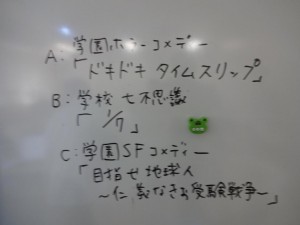 A:学園ホラーコメデー
「ドキドキタイムスリップ」
B:学校七不思議
「1/7」
C:学園SFコメディー
「目指せ地球人
～仁義なきお受験戦争～」